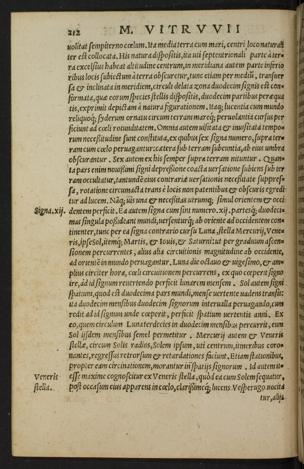 212 M. VITRVVII
uolitat sempiterno cœlum. Ita media terra cum mari, centri loco naturaliter
est collocata. His natura dispositis, ita uti septentrionali parte à ter-
ra excelsius habeat altitudine centrum, in meridiana autem parte inferio
ribus locis subiectum à terra obscuretur, tunc etiam per mediã, transuer
sa & inclinata in meridiem, circuli delata zona duodecim signis est con-
formata, quæ eorum species stellis dispositis, duodecim partibus peræqua
tis, exprimit depictam à natura figurationem. Itaq; lucentia cum mundo
reliquoq; syderum ornatu circum terram mareq; peruolantia cursus per
ficiunt ad cœli rotunditatem. Omnia autem uisitata & inuisitata tempo-
rum necessitudine sunt constituta, ex quibus sex signa numero, supra ter
ram cum cœlo peruagantur: cætera sub terram subeuntia, ab eius umbra
obscurantur. Sex autem ex his semper supra terram nituntur. Quan-
ta pars enim nouissimi signi depressione coacta uersatione subiens sub ter
ram occultatur, tantundem eius contraria uersationis necessitate suppres-
sa, rotatione circumacta trans è locis non patentibus & obscuris egredi
tur ad lucem. Nãq; uis una & necessitas utrumq; simul orientem & occi
Signa. xij. dentem perficit. Ea autem signa cum sint numero. xij. partesq; duodeci-
mas singula possideant mundi, uersenturq; ab oriente ad occidentem con
tinenter, tunc per ea signa contrario cursu Luna, stella Mercurij, Vene-
ris, ipse Sol, itemq; Martis, & Iouis, & Saturni, ut per graduum ascen-
sionem percurrentes, alius alia circuitionis magnitudine ab occidente,
ad orientẽ in mundo peruagantur. Luna die octauo & uigesimo, & am-
plius circiter hora, cœli circuitionem percurrens, ex quo cœperit signo
ire, ad id signum reuertendo perficit lunarem mensem. Sol autem signi
spatium, quod est duodecima pars mundi, mense uertente uadens transit:
ita duodecim mensibus duodecim signorum interualla peruagando, cum
redit ad id signum unde cœperit, perficit spatium uertentis anni. Ex
eo, quem circulum Luna terdecies in duodecim mensibus percurrit, eum
Sol iisdem mensibus semel permetitur. Mercurij autem & Veneris
stellæ, circum Solis radios, Solem ipsum, uti centrum, itineribus coro-
nantes, regressus retrorsum & retardationes faciunt. Etiam stationibus,
propter eam circinationem, morantur in spatijs signorum. Id autem ita
Veneris esse maxime cognoscitur ex Veneris stella, quòd ea cum Solem sequatur,
stella. post occasum eius apparens in cœlo, clarissimeq; lucens Vesperugo uocita
tur, alijs